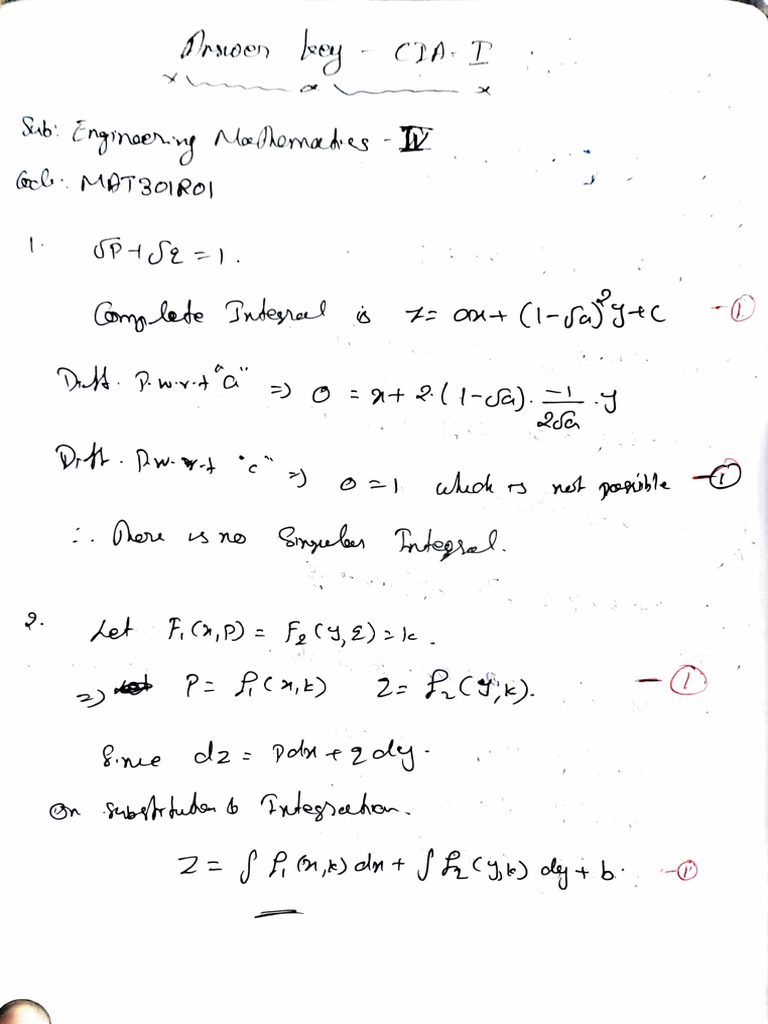 Answer key - CIA-I
Sub: Engineering Mathematics - IV
Code: MAT301R01
1. √P + √q = 1.
Complete Integral is z = ax + (1-√a)²y + c - ①
Diff. P.w.r.t "a" => 0 = x + 2·(1-√a)· -1/2√a ·y
Diff. P.w.r.t "c" => 0 = 1 which is not possible - ①
∴ There is no Singular Integral.
2. Let F₁(x,P) = F₂(y,q) = k.
=> P = f₁(x,k) q = f₂(y,k). - ①
Since dz = Pdx + qdy.
On substitution & Integration.
Z = ∫ f₁(x,k) dx + ∫ f₂(y,k) dy + b. - ①